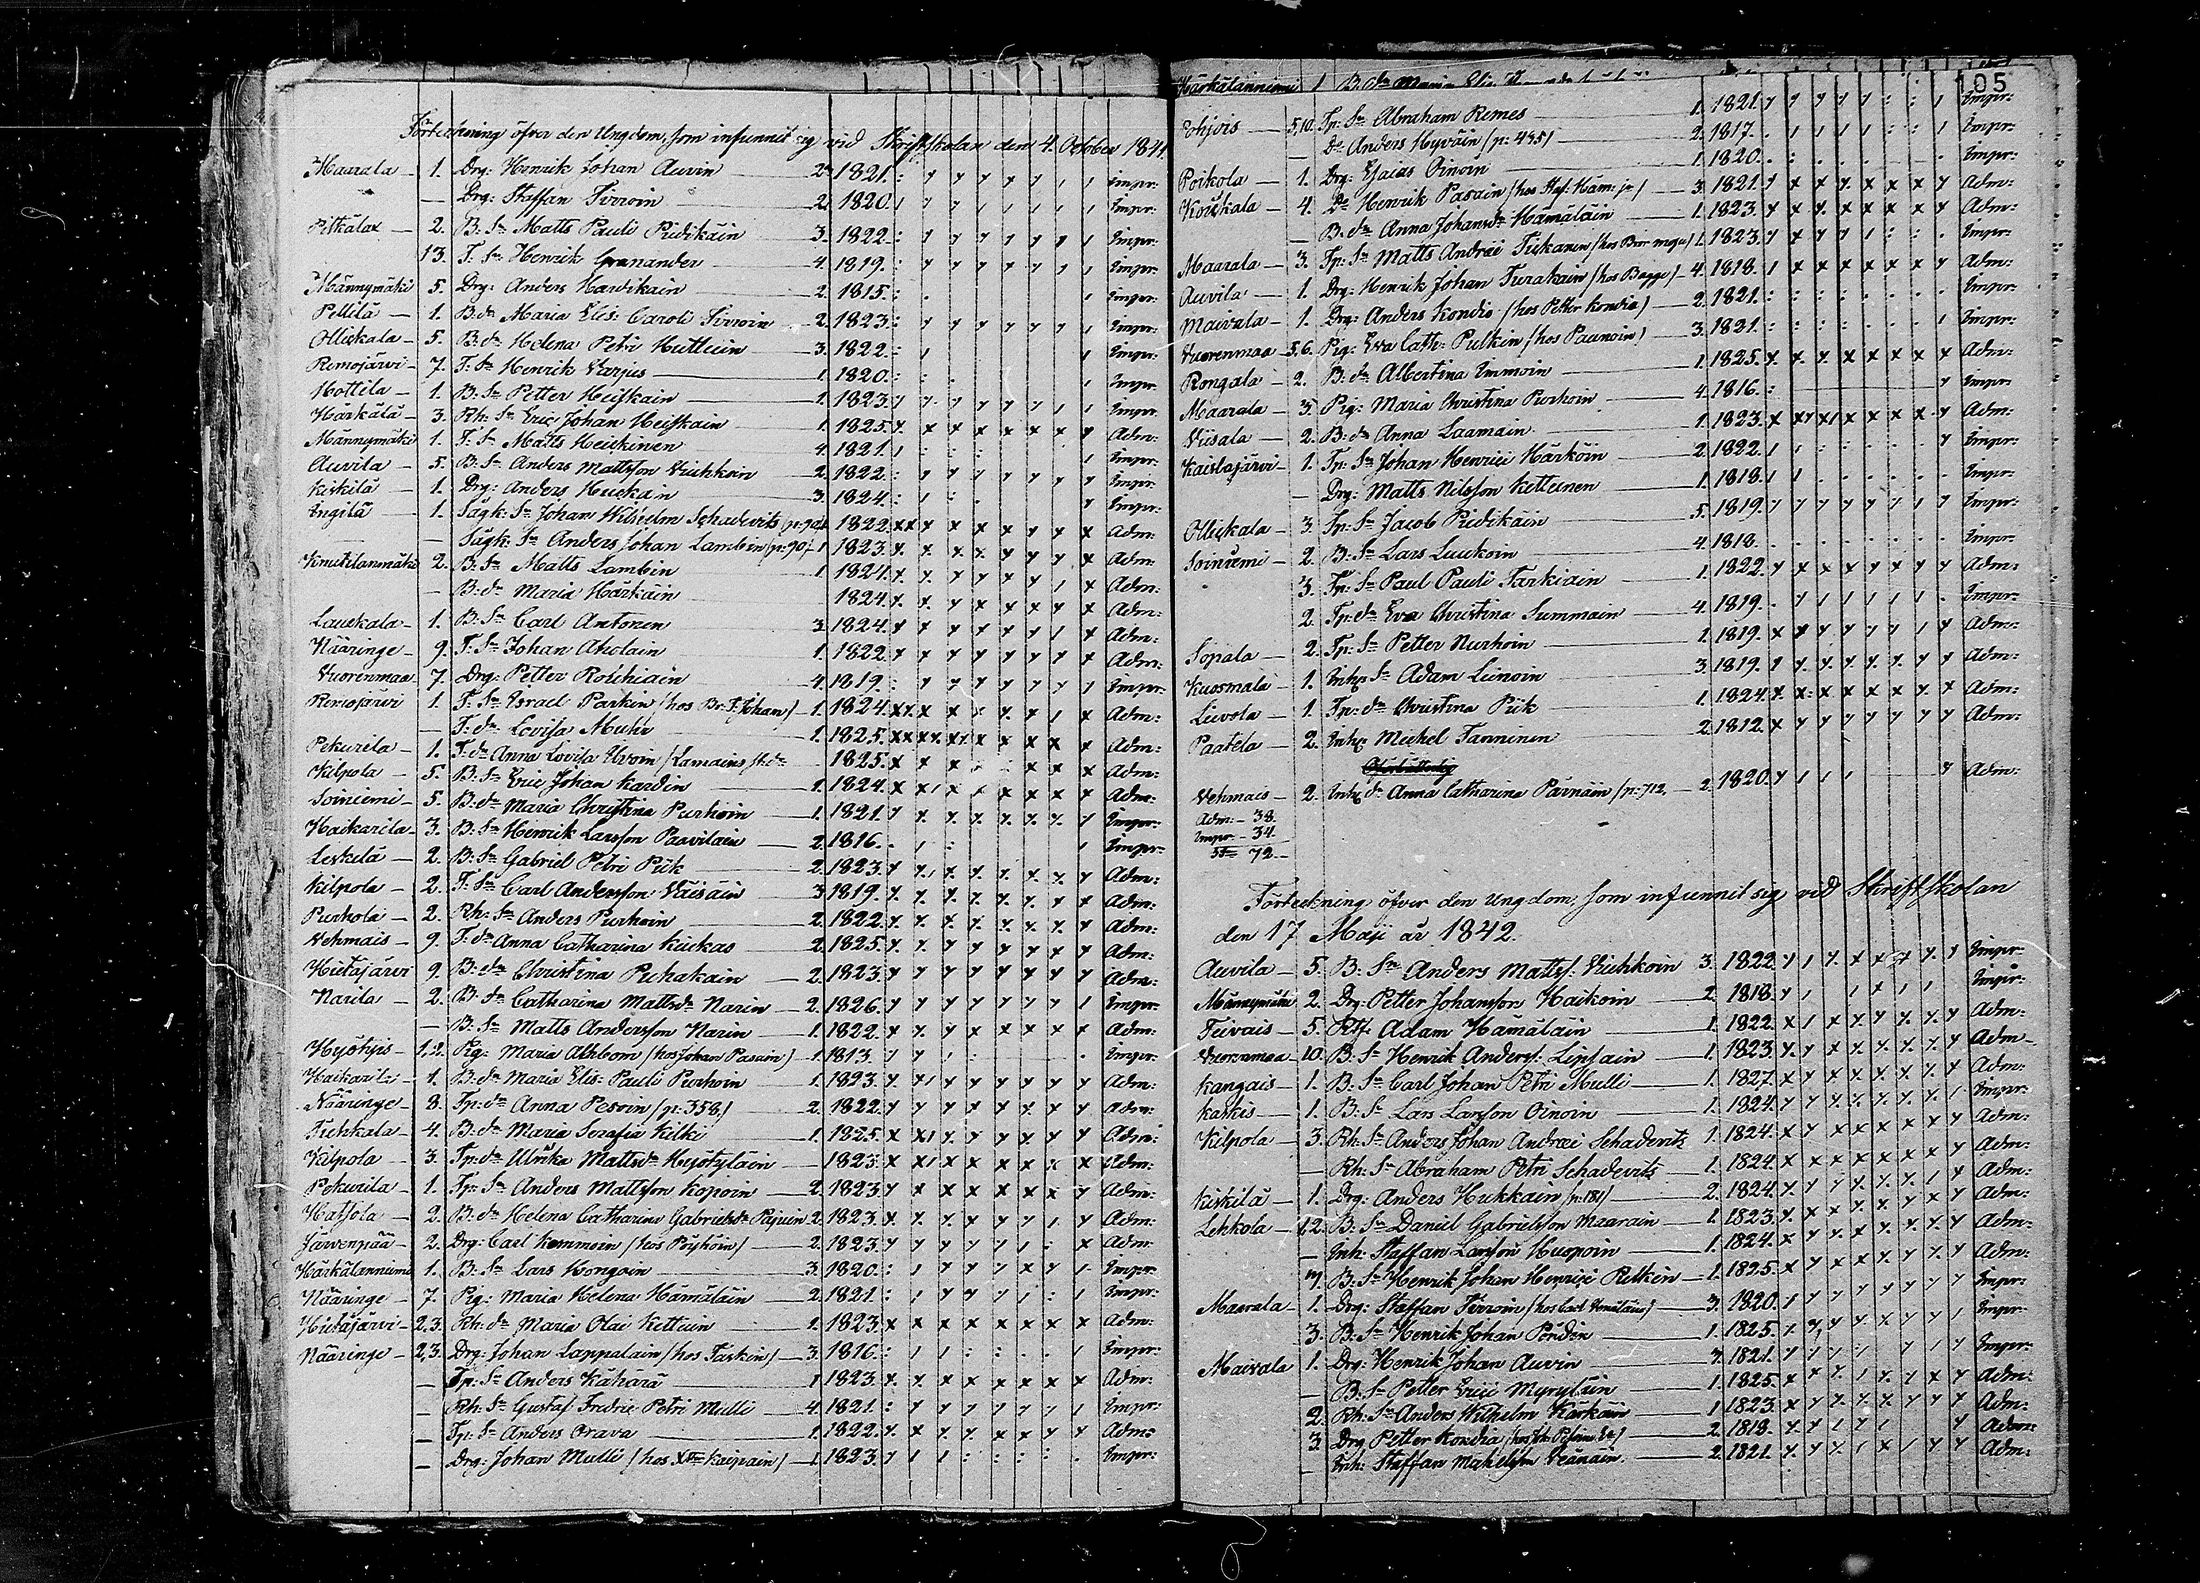 Förteckning öfver den Ungdom, som infunnit sig vid Skriftskolan den 4. October 1841
Maarala — 1. Drg: Henrik Johan Auvin — 2. 1821. Impr:
— Drg: Staffan Tirroin 2. 1820. Impr:
2. B: Sn Matts Pauli Pudikäin — 3. 1822. Impr:
13. T. Sn Henrik Granander — 4. 1819. Impr:
Männymäki 5. Drg: Anders Hardikain — 2. 1815. Impr:
Pellilä — 1. B: dr Maria Elis: Caroli Tirroin 2. 1823. Impr:
Ollickala — 5. B: dr Helena Petri Huttuin — 3. 1822. Impr:
Remojärvi — 7. T: Sn Henrik Varjus — 1. 1820. Impr:
Hottila — 1. B: Sn Petter Heiskain — 1. 1823. Impr:
Härkälä — 3. Rh: Sn Eric Johan Heiskain — 1. 1825. Adm:
Männymäki 1. T. Sn Matts Heickinen 4. 1821. Impr:
Auvila — 5. B: Sn Anders Mattsson Vichkoin — 2. 1822. Impr:
Kiskilä — 1. Drg: Anders Huckain 3. 1824. Impr:
Ingilä — 1. Sägk: Sn Johan Wilhelm Schadevits 1822. Adm:
— Sägk: Sn Anders Johan Lambin (p: 90) 1. 1823. Adm:
Knuutilanmäki 2. B: Sn Matts Lambin 1. 1821. Adm:
— B: dr Maria Härkäin 1824. Adm:
Lauckala — 1. B: Sn Carl Antonen 3. 1824. Adm:
Nääringe — 9. T. Sn Johan Aholain 1. 1822. Adm:
Vuorenmaa — 7. Drg: Petter Roschiäin 4. 1819. Impr:
Remojärvi 1. T. Sn Israel Parkin (hos Br. T. Johan) — 1. 1824. Adm:
— T: dr Lovisa Muhr 1. 1825. Adm:
Pekurila — 1. T: dr Anna Lovisa Hvoin 1825. Adm:
Kilpola — 5. B: Sn Eric Johan Kardin — 1. 1824. Adm:
Soiniemi — 5. B: dr Maria Christina Purhoin — 1. 1821. Impr:
Haikarila — 3. B: Sn Henrik Larsson Paavilain — 2. 1816. Impr:
Leskelä — 2. B: Sn Gabriel Petri Piik — 2. 1823. Adm:
Kilpola — 2. T: Sn Carl Andersson Väisäin 3. 1819. Adm:
Purhola — 2. Rh: Sn Anders Purhoin — 2. 1822. Adm:
Vehmais — 9. T: dr Anna Catharina Kuckas — 2. 1825. Adm:
Hietajärvi 9. B: dr Christina Puhakain — 2. 1823. Adm:
Narila — 2. B: dr Catharina Mattsdr Narin — 2. 1826. Impr:
— B: Sn Matts Andersson Narin — 1. 1822. Adm:
1.2. Pig: Maria Ahlbom (hos Johan Pasain) — 1. 1813. Impr:
Haikarila — 1. B: dr Maria Elis: Pauli Purhoin — 1. 1823. Adm:
Nääringe — 8. Tp: dr Anna Pesoin (p: 358.) — 2. 1822. Adm:
4. B: dr Maria Serafia Kilki — 1. 1825. Adm:
Kilpola — 3. Tp: dr Ulrika Mattsdr Hyötyläin — 1823. Adm:
Pekurila — 1. Tp: Sn Anders Mattsson Kopoin — 2. 1823. Adm:
Hatsola — 2. B: dr Helena Catharina Gabrielsdr Pasuin 2. 1823. Adm:
Järvenpää — 2. Drg: Carl Kemmoin (hos Pöyhöin) — 2. 1823. Adm:
Härkälänniemi 1. B: Sn Lars Kongoin — 3. 1820. Impr:
Nääringe — 7. Pig: Maria Helena Hämäläin — 2. 1821. Impr:
Hietajärvi — 2,3. Rh: dr Maria Olai Kettuin — 1. 1823. Adm:
Nääringe — 2,3. Drg: Johan Lappalain (hos Taskin) — 3. 1816. Impr:
— Tp: Sn Anders Kähärä — 1. 1823. Adm:
— Rh: Sn Gustaf Fredric Petri Mulli — 4. 1821. Impr:
— Tp: Sn Anders Orava — 1. 1822. Adm:
— Drg: Johan Mulli (hos Kaipain) — 1. 1823. Impr:
105
Härkälänniemi 1 B: dr Maria Elis:
5,10. Tp: Sn Abraham Remes — 1. 1821. Impr:
— Do Anders Hyväin (p: 435) — 2. 1817. Impr:
Poikola — 1. Drg: Esaias Oinoin — 1. 1820. Impr:
Kouckala — 4. Do Henrik Pasain 3. 1821. Adm:
— B: dr Anna Johansdr Hämäläin — 1. 1823. Adm:
Maarala — 3. Tp: Sn Matts Andræi Tiekanen 1. 1823. Impr:
Auvila — 1. Drg: Henrik Johan Turakain (hos Bagge) — 4. 1818. Adm:
Maivala — 1. Drg: Anders Kondio (hos Petter Kondia) — 2. 1821. Impr:
Vuorenmaa — 5,6. Pig: Eva Cath: Pulkin (hos Paunoin) — 3. 1821. Impr:
Rongala — 2. B: dr Albertina Immoin — 1. 1825. Adm:
Maarala — 3. Pig: Maria Christina Purhoin — 4. 1816. Impr:
Viisala — 2. B: dr Anna Laamain — 1. 1823. Adm:
Kaislajärvi — 1. Tp: Sn Johan Henrici Härköin — 2. 1822. Impr:
— Drg: Matts Nilsson Kettunen — 1. 1818. Impr:
Ollickala — 3. Tp: Sn Jacob Pudikäin — 5. 1819. Impr:
Soiniemi — 2. B: Sn Lars Luckoin — 4. 1818. Impr:
3. Tp: Sn Paul Pauli Tarkiain — 1. 1822. Adm:
2. Tp: dr Eva Christina Summain — 4. 1819. Impr:
Sopala — 2. Tp: Sn Petter Nurhoin — 1. 1819. Adm:
Kuosmala — 1. Inh: Sn Adam Lienoin — 3. 1819. Adm:
Liivola — 1. Tp: dr Christina Piik — 1. 1824. Adm:
Paatela — 2. Inh: Michel Tanninen 2. 1812. Adm:
Vehmais — 2. Inh: dr Anna Catharina Pärnäin (p: 712. — 2. 1820. Adm:
Adm: — 38.
Impr: — 34.
Sa 72. —
Förteckning öfver den Ungdom, som infunnit sig vid Skriftskolan
den 17 Maji år 1842.
Auvila — 5. B: Sn Anders Mattss: Vichkoin 3. 1822. Impr:
Männymäki 2. Drg: Petter Johansson Haikoin — 2. 1818. Impr:
Teivais — 5. Adam Hämäläin — 1. 1822. Adm:
Vuorenmaa — 10. B: Sn Henrik Anderss: Lipsain — 1. 1823. Adm —
Kangais — 1. B: Sn Carl Johan Petri Mulli — 1. 1827. Adm:
Karkis — 1. B: Sn Lars Larsson Oinoin — 1. 1824. Impr:
Kilpola — 3. Rh: Sn Anders Johan Andræi Schadevits 1. 1824. Adm:
— Rh: Sn Abraham Petri Schadevits — 1. 1824. Adm:
Kiskilä — 1. Drg: Anders Huckkain (p: 181) — 2. 1824. Adm:
Lehkola — 12. B: Sn Daniel Gabrielsson Maarain — 1. 1823. Adm:
— Inh: Staffan Larsson Huopoin — 1. 1824. Adm:
7. B: Sn Henrik Johan Henrici Pulkin — 1. 1825. Adm:
Maarala — 1. Drg: Staffan Tirroin 3. 1820. Impr:
3. B: Sn Henrik Johan Pöndin — 1. 1825. Impr:
Maivala 1. Drg: Henrik Johan Auvin — 3. 1821. Impr:
— B: Sn Petter Erici Myryläin — 1. 1825. Adm:
2. Rh: Sn Anders Wilhelm Kärkäin — 1. 1823. Adm:
3. Drg: Petter Kondia — 2. 1818. Adm:
— Inh: Staffan Michelsson Veänäin — 2. 1821. Adm: